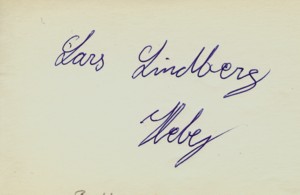 Lars Lindberg
Heby